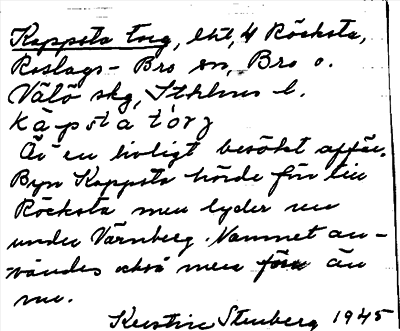 Kappsta torg, lht, 4 Röcksta,
Roslags-Bro sn, Bro o.
Välö skg, Sthlms l.
kapsta torj
Är en livligt besökt affär.
Byn Kappsta hörde förr till
Röcksta men lyder nu
under Värnberg. Namnet an-
vändes också mera förr än
nu.
Kerstin Stenberg 1945